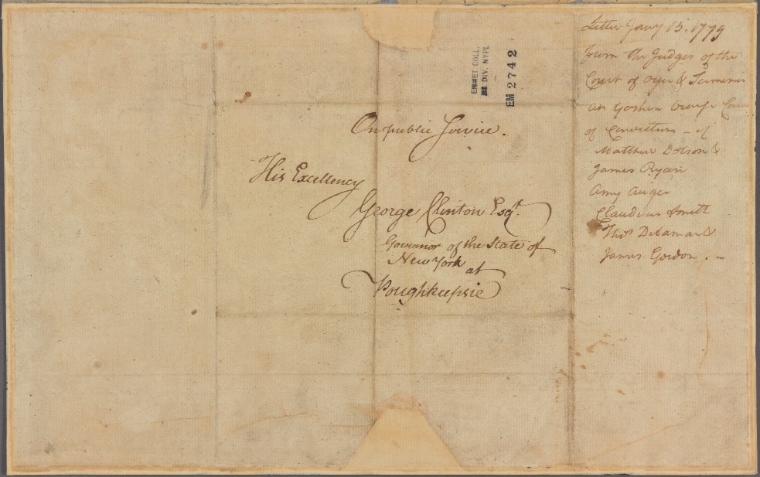 On public Service.
His Excellency
George Clinton Esqr.
Governor of the State of
New York
at
Poughkeepsie
EMMET COLL.
DIV. NYPL
EM 2742
Letter Jany 13. 1779
from the Judges of the
Court of Oyer & Terminer
at Goshen Orange
of Conviction of
Matthew &
James Ryan
Amy Auger
Claudius Smith
Thos. Delamar &
James Gordon.